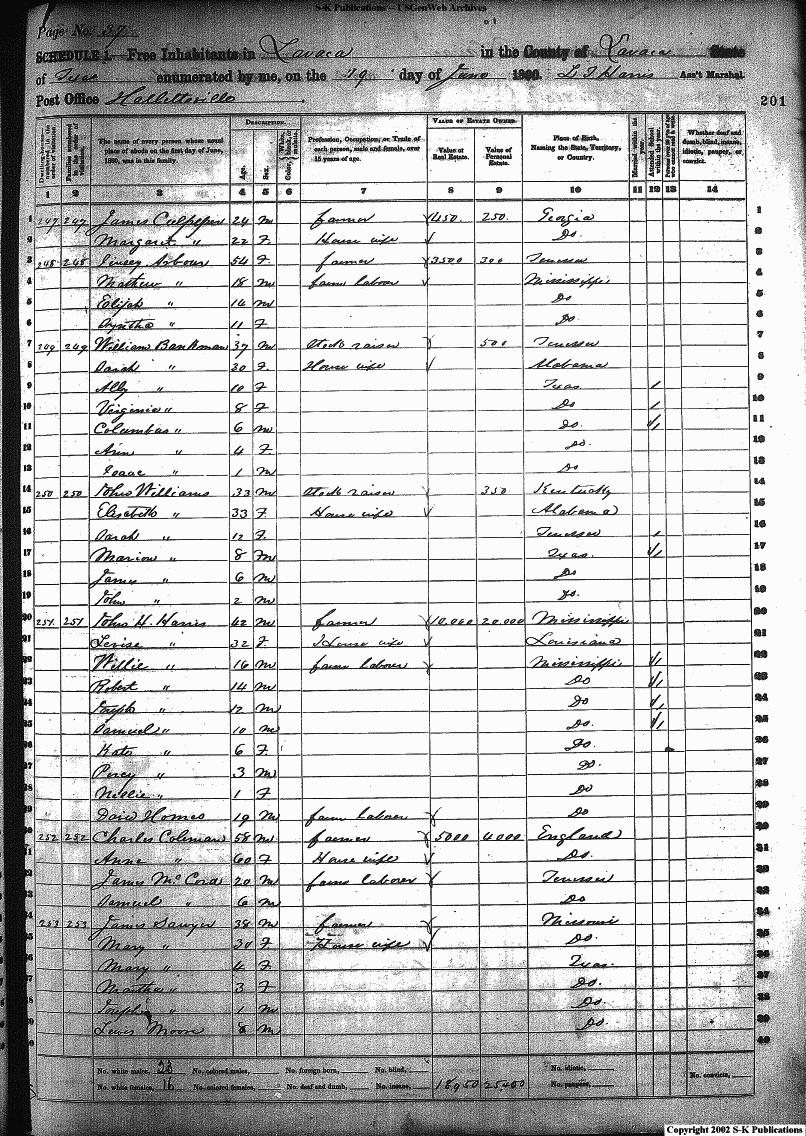 S-K Publications – USGenWeb Archives
Page No. 37
SCHEDULE 1. Free Inhabitants in Lavaca in the County of Lavaca State
of Texas enumerated by me, on the 19 day of June 1860. L T Harris Ass't Marshal.
Post Office Hallettsville
201
DESCRIPTION. VALUE OF ESTATE OWNED.
The name of every person whose usual place of abode on the first day of June, 1860, was in this family. Age. Sex. Profession, Occupation, or Trade of each person, male and female, over 15 years of age. Value of Real Estate. Value of Personal Estate. Place of Birth, Naming the State, Territory, or Country. Married within the year. Attended School within the year. Whether deaf and dumb, blind, insane, idiotic, pauper, or convict.
1 2 3 4 5 6 7 8 9 10 11 12 13 14
1 247 247 James Culpeper 24 m farmer 450. 250. Georgia 1
2 Margaret " 22 F House wife Do. 2
3 248 248 Arbour 54 F farmer 3500 300 Tenessee 3
4 Mathew " 18 m farm laborer Mississippi 4
5 Elijah " 14 m Do 5
6 " 11 F Do. 6
7 249 249 William Bankman 37 m Stock raiser 500 Tenessee 7
8 Sarah " 30 F. House wife Alabama 8
9 Ally " 10 F Texas 1 9
10 Virginia " 8 F Do 1 10
11 Columbus " 6 m Do. 1 11
12 Ann " 4 F Do. 12
13 Isaac " 1 m Do 13
14 250 250 John Williams 33 m Stock raiser 350 Kentucky 14
15 Elisabeth " 33 F House wife Alabama 15
16 Sarah " 12 F. Tenessee 1 16
17 Marion " 8 m Texas. 1 17
18 James " 6 m Do 18
19 John " 2 m Do. 19
20 251 251 John H. Harris 42 m farmer 10,000 20,000 Mississippi 20
21 Levise " 32 F House wife Louisiana 21
22 Willie " 16 m farm laborer Mississippi 1 22
23 Robert " 14 m Do 1 23
24 Joseph " 12 m Do 1 24
25 Samuel " 10 m Do. 1 25
26 Kate " 6 F Do. 26
27 Percy " 3 m Do. 27
28 Nellie " 1 F Do 28
29 Homes 19 m farm laborer Do 29
30 252 252 Charles Coleman 58 m farmer 5000 4000 England 30
31 Anne " 60 F House wife Do. 31
32 James McCord 20 m farm laborer Tenessee 32
33 Samuel " 6 m Do 33
34 253 253 James Sawyer 38 m farmer Missouri 34
35 Mary " 30 F House wife Do. 35
36 Mary " 4 F Texas. 36
37 Martha " 3 F Do. 37
38 Joseph " 1 m Do. 38
39 Lewis Moore 8 m Do. 39
40
No. white males, 23 No. colored males, No. foreign born, No. blind, No. idiotic,
No. white females, 16 No. colored females, No. deaf and dumb, No. insane, 18950 25400 No. paupers, No. convicts,
Copyright 2002 S-K Publications